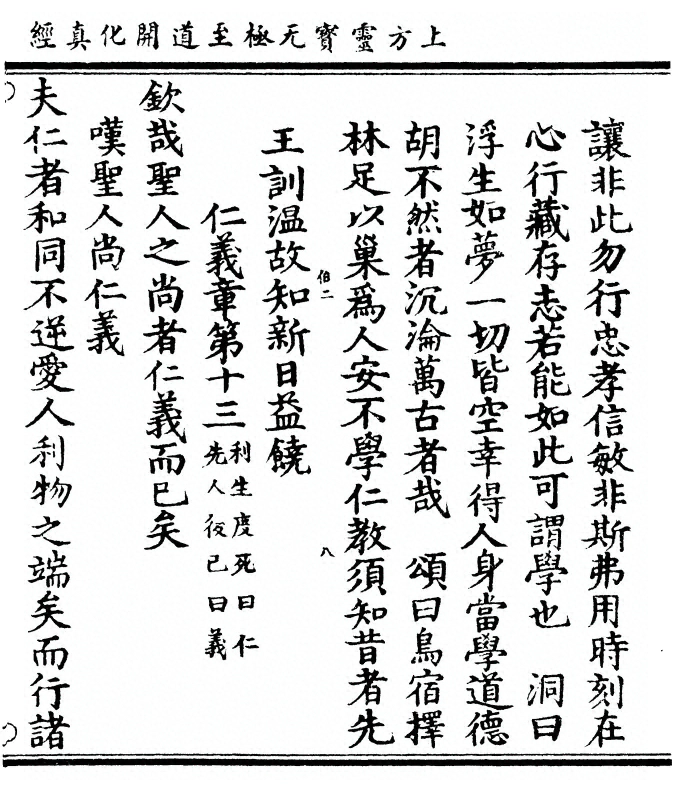 上方靈寶无極至道開化真經
讓非此勿行忠孝信敏非斯弗用時刻在
心行藏存志若能如此可謂學也　洞曰
浮生如夢一切皆空幸得人身當學道德
胡不然者沉淪萬古者哉　頌曰鳥宿擇
林足以巢爲人安不學仁教須知昔者先
伯二
八
王訓温故知新日益饒
仁義章第十三利生度死曰仁
先人後已曰義
欽哉聖人之尚者仁義而已矣
嘆聖人尚仁義
夫仁者和同不逆愛人利物之端矣而行諸